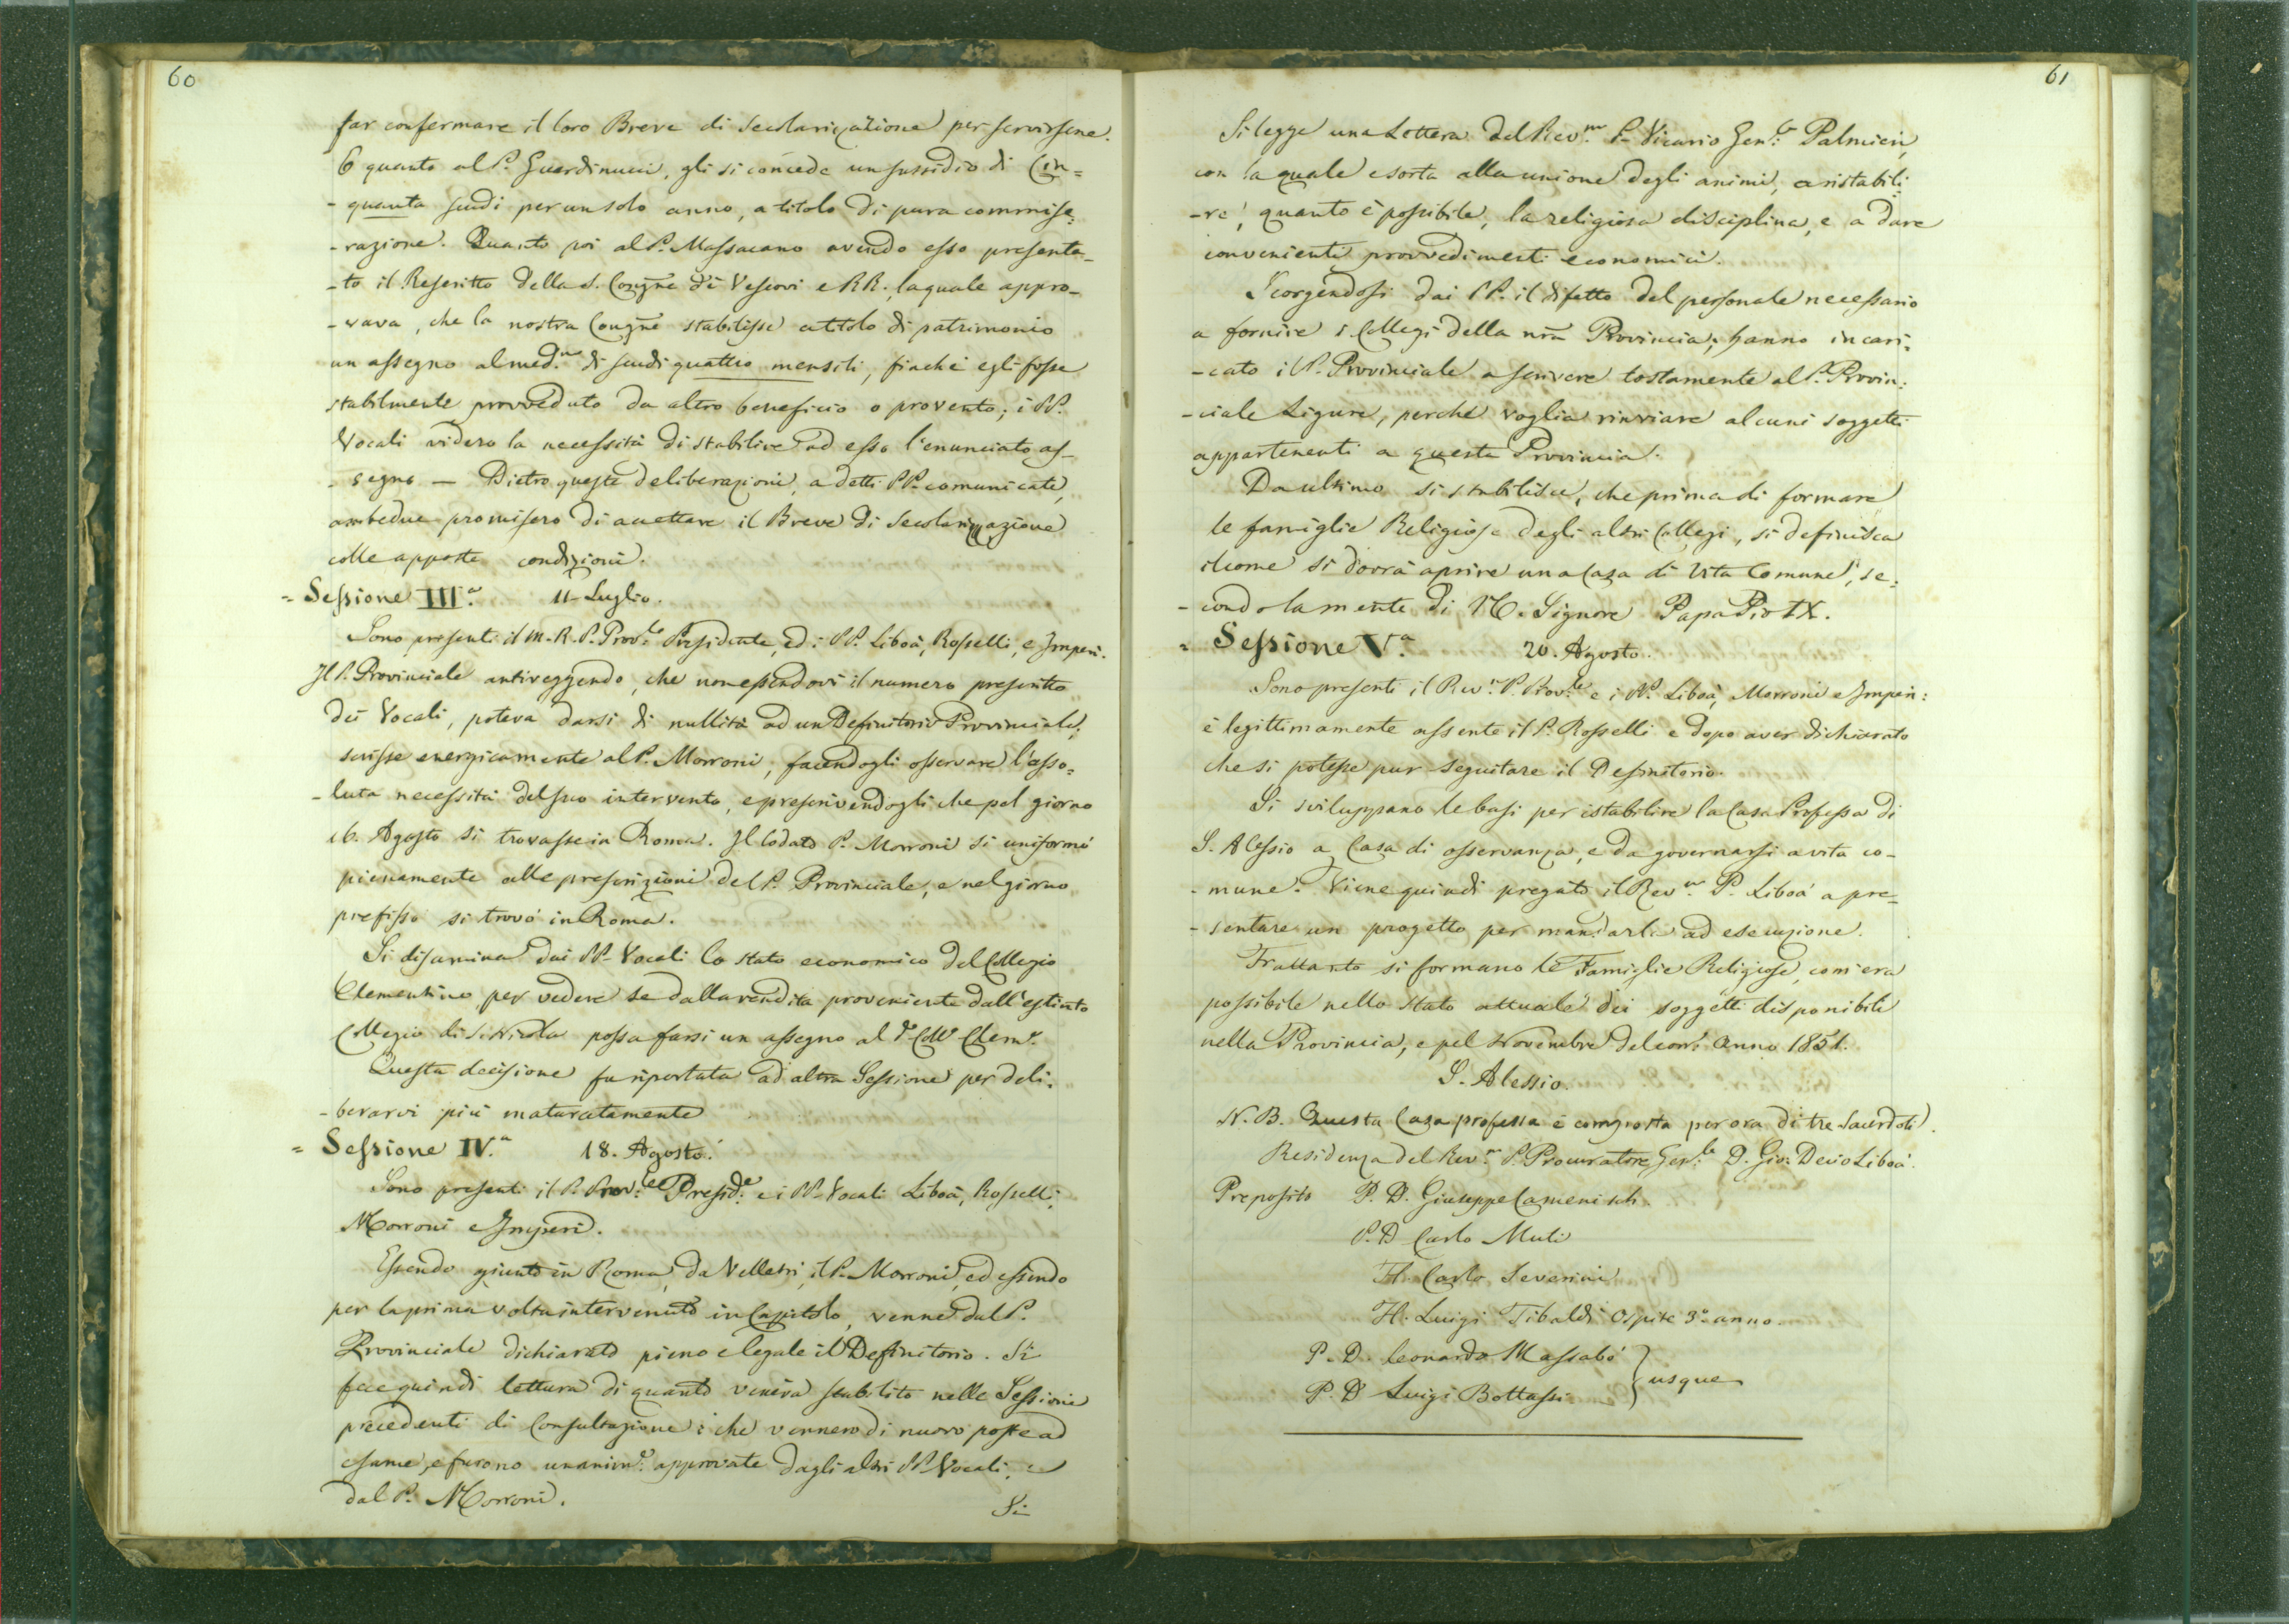 60
far confermare il loro Breve di Secolarizazione per servirsene.
E quanto al P. Guardinucci, gli si concede un sussidio di Cin=
-quanta scudi per un solo anno, a titolo di pura commise:
-razione. Quanto poi al P. Massacano avendo esso presenta-
-to il Rescritto della S. Congñe dei Vescovi e RR. la quale appro-
-vava, che la nostra Congñe stabilisse a titolo di patrimonio
un assegno al med.mo di scudi quattro mensili, finchè egli fosse
stabilmente provveduto da altro beneficio o provento; i PP.
Vocali videro la necessità di stabilire ad esso l'enunciato as-
-segno — Dietro queste deliberazioni, a detti PP. comunicate,
ambedue promisero di accettare il Breve di Secolarizzazione
colle apposte condizioni.
= Sessione III.a 11 Luglio.
Sono presenti il M. R. P. Prov.le Presidente, ed i PP. Liboà, Rosselli, e Imperi.
Il P. Provinciale antiveggendo, che non essendovi il numero prescritto
dei Vocali, poteva darsi di nullità ad un Definitorio Provinciale,
scrisse energicamente al P. Morroni, facendogli osservare l'asso=
-luta necessità del suo intervento, e prescrivendogli che pel giorno
16. Agosto si trovasse in Roma. Il lodato P. Morroni si uniformò
pienamente alle prescrizioni del P. Provinciale, e nel giorno
prefisso si trovò in Roma.
Si disamina dai PP. Vocali lo stato economico del Collegio
Clementino, per vedere se dalla rendita proveniente dall'estinto
Collegio di S. Nicola possa farsi un assegno al d.o Coll.o Clem.o
Questa decisione fu riportata ad altra Sessione per deli-
-berarvi più maturatamente
= Sessione IV.a 18. Agosto.
Sono presenti il P. Prov.le Presid.e e i PP. Vocali Liboà, Rosselli,
Morroni e Imperi.
Essendo giunto in Roma, da Velletri, il P. Morroni, ed essendo
per la prima volta intervenuto in Capitolo, venne dal P.
Provinciale dichiarato pieno e legale il Definitorio. Si
fece quindi lettura di quanto veniva stabilito nelle Sessioni
precedenti di Consultazione; che vennero di nuovo poste ad
esame, e furono unanim.e approvate dagli altri PP. Vocali, e
dal P. Morroni.
Si
61
Si legge una Lettera del Rev.mo P. Vicario Gen.le Palmieri,
con la quale esorta alla unione degli animi, a ristabili-
-re, quanto è possibile, la religiosa disciplina, e a dare
convenienti provvedimenti economici.
Scorgendosi dai PP. il difetto del personale necessario
a fornire i Collegi della nrã Provincia, hanno incari-
-cato il P. Provinciale a scrivere tostamente al P. Provin:
-ciale Ligure, perchè voglia rinviare alcuni soggetti
appartenenti a questa Provincia.
Da ultimo si stabilisce, che prima di formare
le famiglie Religiose degli altri Collegi, si definisca
il come si dovrà aprire una Casa di Vita Comune, se-
-condo la mente di N. Signore Papa Pio IX.
= Sessione V.a 20. Agosto.
Sono presenti il Rev.o P. Prov.le e i PP. Liboà, Morroni e Imperi:
è legittimamente assente il P. Rosselli e dopo aver dichiarato
che si potesse pur seguitare il Definitorio.
Si sviluppano le basi per istabilire la Casa Professa di
S. Alessio a Casa di osservanza, e da governarsi a vita co-
-mune. Viene quindi pregato il Rev.mo P. Liboà a pre-
-sentare un progetto per mandarli ad esecuzione.
Frattanto si formano le Famiglie Religiose, com'era
possibile nello stato attuale dei soggetti disponibili
nella Provincia, e pel Novembre del corr.e Anno 1851.
S. Alessio.
N. B. Questa Casa professa è composta per ora di tre Sacerdoti.
Residenza del Rev.mo P. Procuratore Gen.le D. Gio: Decio Liboà.
Preposito P. D. Giuseppe Camenisch
P. D Carlo Muti
H. Carlo Severini
H. Luigi Tibaldi Ospite 3.o anno.
P. D. Leonardo Massabò
P. D Luigi Bottassi } usque